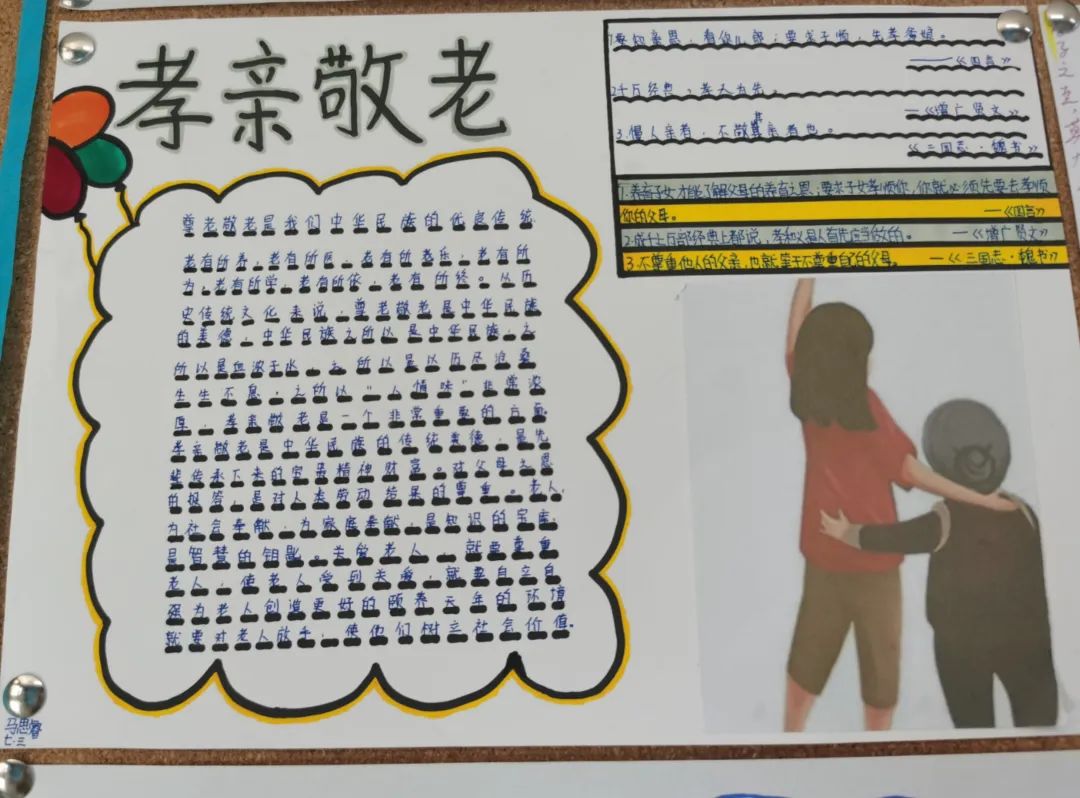 孝亲敬老
尊老敬老是我们中华民族的优良传统
老有所养，老有所医，老有所乐，老有所
为，老有所学，老有所依，老有所终。从历
史传统文化来说，尊老敬老是中华民族
的美德，中华民族之所以是中华民族，之
所以是血浓于水，之所以是以历尽沧桑
生生不息，之所以“人情味”非常浓
厚，孝亲敬老是一个非常重要的方面。
孝亲敬老是中华民族的传统美德，是先
辈传承下来的宝贵精神财富。对父母之恩
的报答，是对人类劳动结果的尊重。老人，
为社会奉献，为家庭奉献，是知识的宝库，
是智慧的钥匙。关爱老人，就要尊重
老人，使老人受到关爱，就要自立自
强为老人创造更好的颐养天年的环境
就要对老人放手，使他们树立社会价值。
1要知亲恩，看你儿郎；要求子顺，先孝爹娘。
——《四言》
2千万经典，孝大为先。
—《增广贤文》
3.慢人亲者，不敬其亲者也。
《三国志·魏书》
1.养育子女才能了解父母的养育之恩；要求子女孝顺你，你就必须先要去孝顺
你的父母。 —《四言》
2.成千上万部经典上都说，孝和义是人首先应当做的。 —《增广贤文》
3.不尊重他人的父亲，也就等于不尊重自己的父母。 —《三国志·魏书》
马思睿
七·三